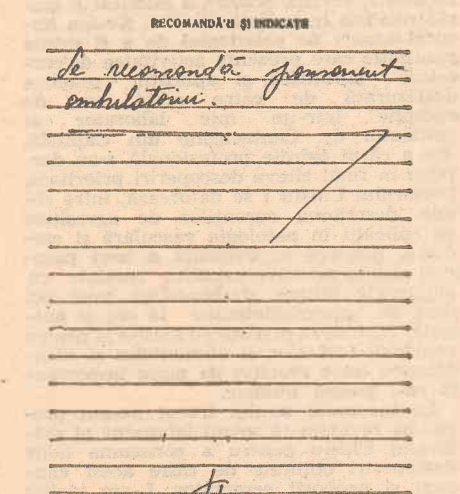 RECOMANDĂRI ȘI INDICAȚII
Se recomandă pansament
ambulatoriu.